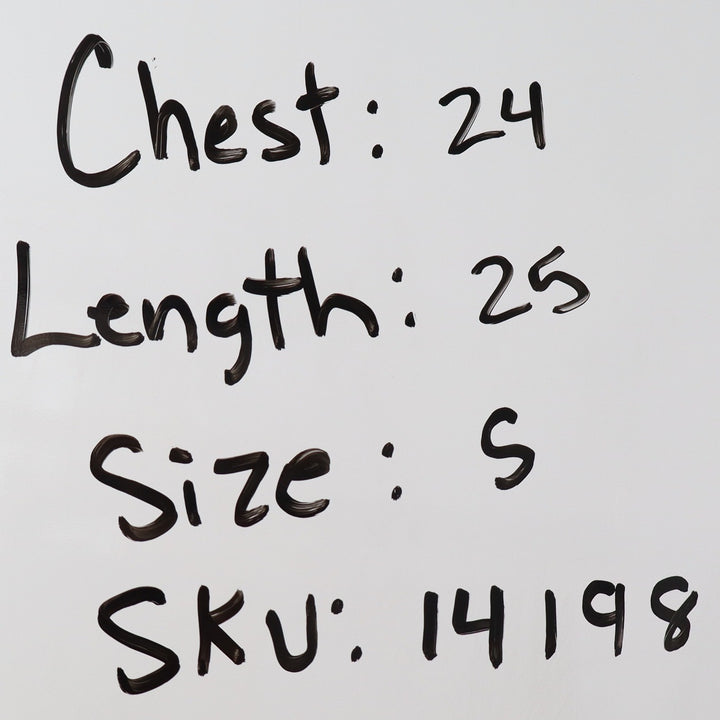 Chest: 24
Length: 25
Size: S
SKU: 14198